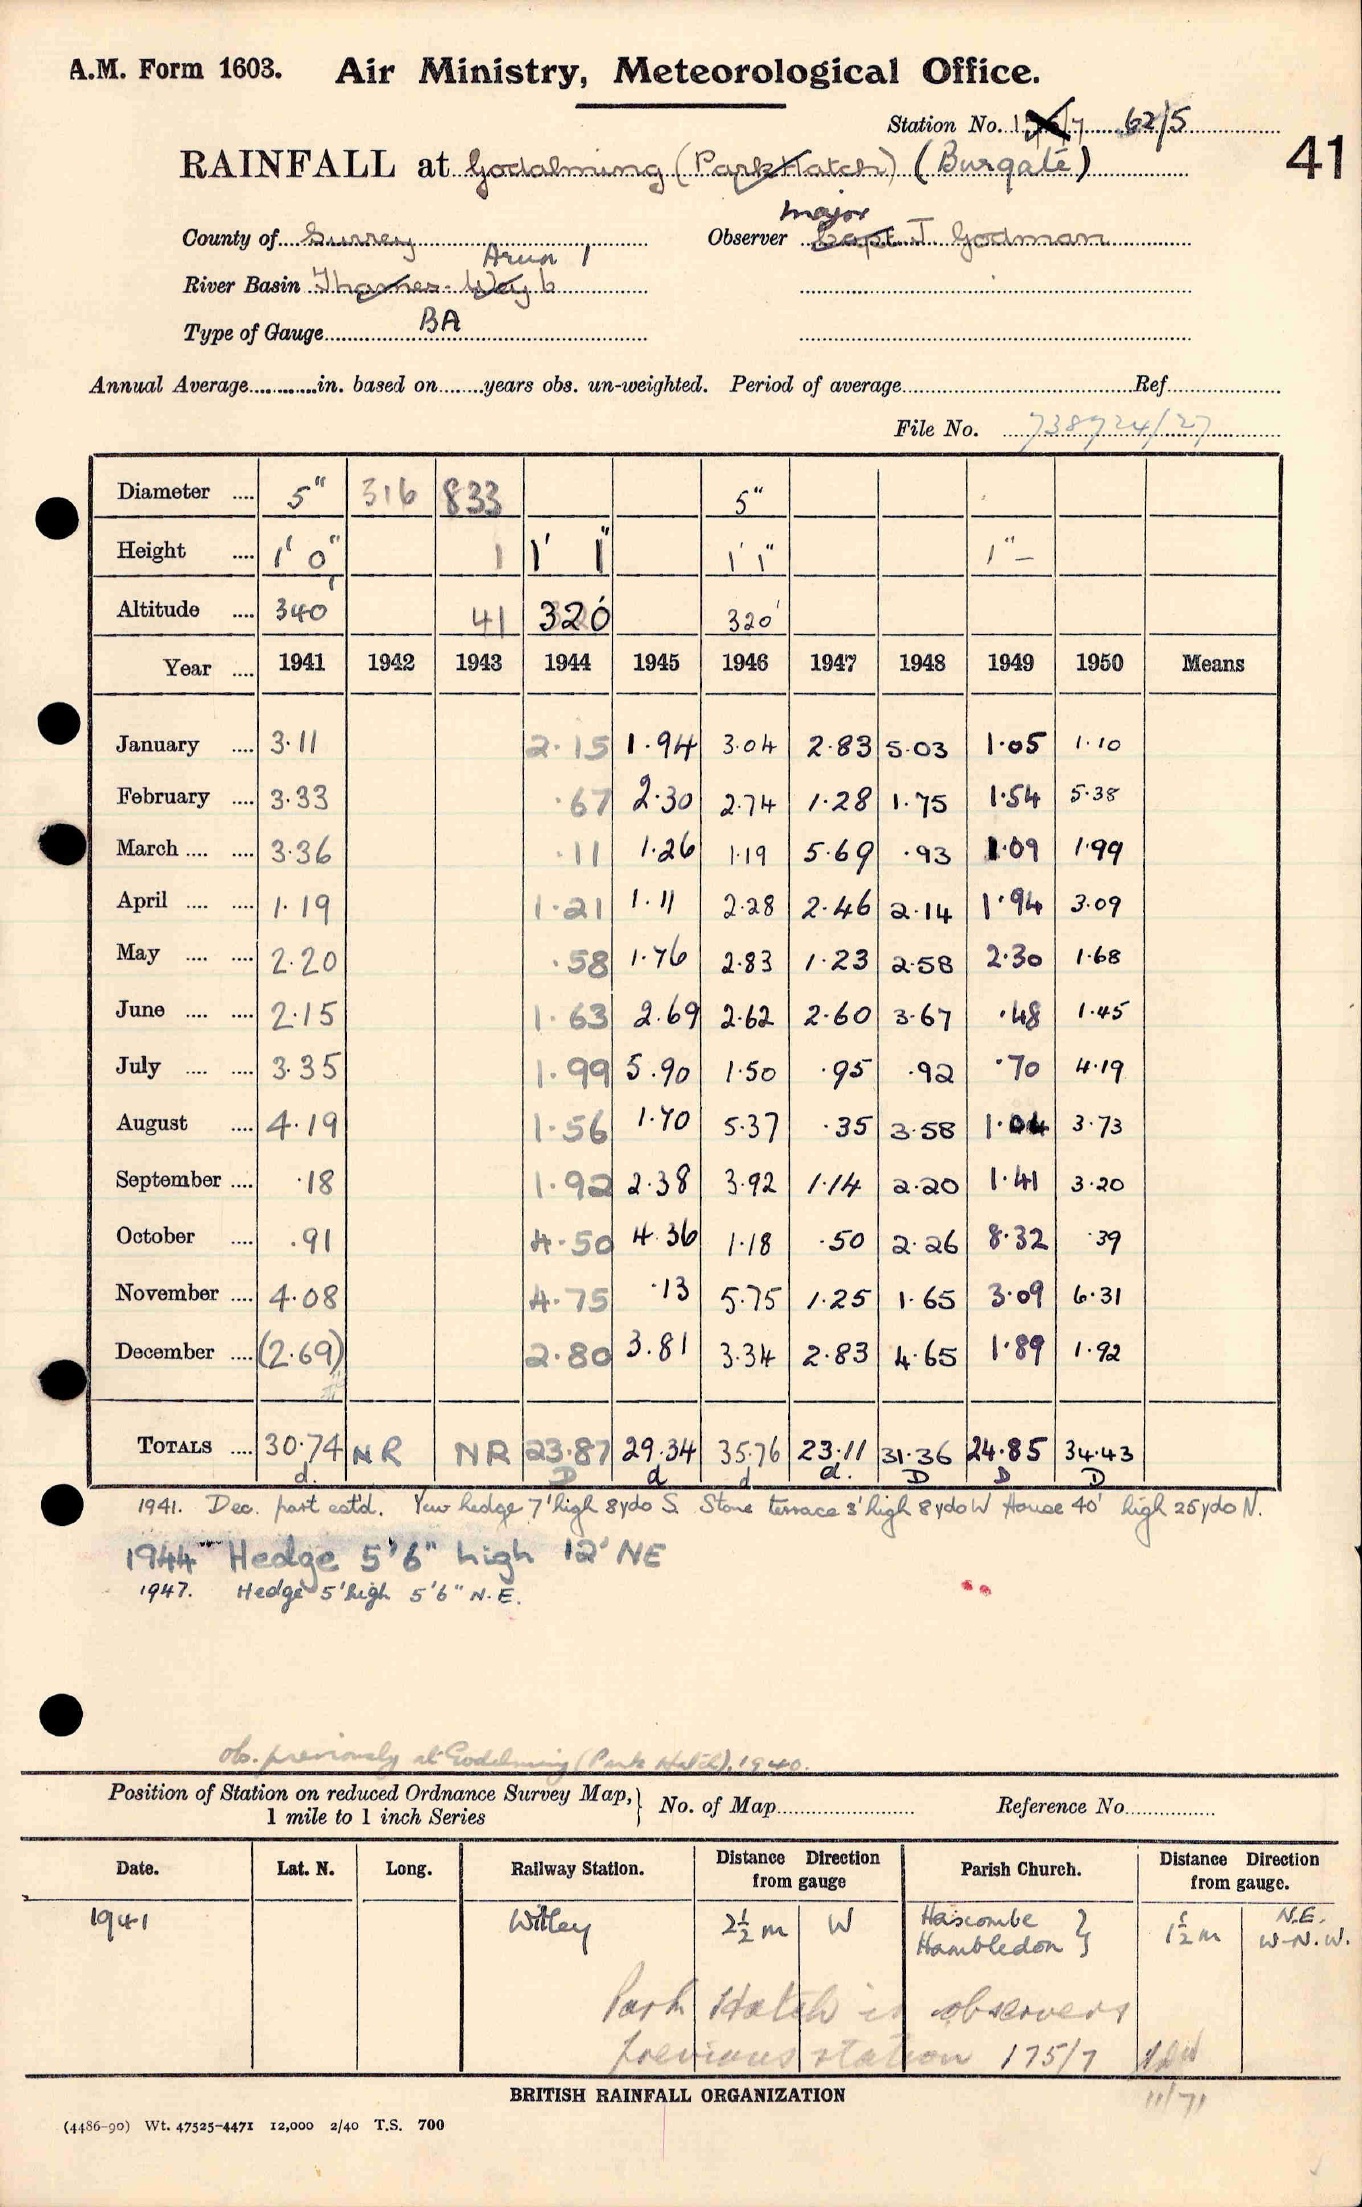 A.M. Form 1603. Air Ministry, Meteorological Office.
Station No. 62/5
41
RAINFALL at Godalming (Park Hatch) (Burgate)
Major
County of Surrey Observer Capt. J. Godman
Arun 1
River Basin Thames-Wey 6
Type of Gauge BA
Annual Average in. based on years obs. un-weighted. Period of average Ref
File No. 738724/27
Diameter 5" 316 833 5"
Height 1' 0" 1 1' 1" 1' 1" 1" –
Altitude 340' 41 320' 320'
Year 1941 1942 1943 1944 1945 1946 1947 1948 1949 1950 Means
January 3.11 2.15 1.94 3.04 2.83 5.03 1.05 1.10
February 3.33 .67 2.30 2.74 1.28 1.75 1.54 5.38
March 3.36 .11 1.26 1.19 5.69 .93 1.09 1.99
April 1.19 1.21 1.11 2.28 2.46 2.14 1.94 3.09
May 2.20 .58 1.76 2.83 1.23 2.58 2.30 1.68
June 2.15 1.63 2.69 2.62 2.60 3.67 .48 1.45
July 3.35 1.99 5.90 1.50 .95 .92 .70 4.19
August 4.19 1.56 1.70 5.37 .35 3.58 1.04 3.73
September .18 1.92 2.38 3.92 1.14 2.20 1.41 3.20
October .91 4.50 4.36 1.18 .50 2.26 8.32 .39
November 4.08 4.75 .13 5.75 1.25 1.65 3.09 6.31
December (2.69) 2.80 3.81 3.34 2.83 4.65 1.89 1.92
TOTALS 30.74 NR NR 23.87 29.34 35.76 23.11 31.36 24.85 34.43
d. D d d d. D D D
1941. Dec. part est'd. Yew hedge 7' high 8 yds S. Stone terrace 3' high 8 yds W House 40' high 25 yds N.
1944 Hedge 5'6" high 12' NE
1947. Hedge 5' high 5'6" N.E.
obs. previously at Godalming (Park Hatch), 1940.
Position of Station on reduced Ordnance Survey Map, 1 mile to 1 inch Series } No. of Map Reference No.
Date. Lat. N. Long. Railway Station. Distance Direction from gauge Parish Church. Distance Direction from gauge.
1941 Witley 2½ m W Hascombe } 1½ m N.E.
Hambledon } W-N.W.
Park Hatch is observers
previous station 175/7
11/71
BRITISH RAINFALL ORGANIZATION
(4486-90) Wt. 47525-4471 12,000 2/40 T.S. 700